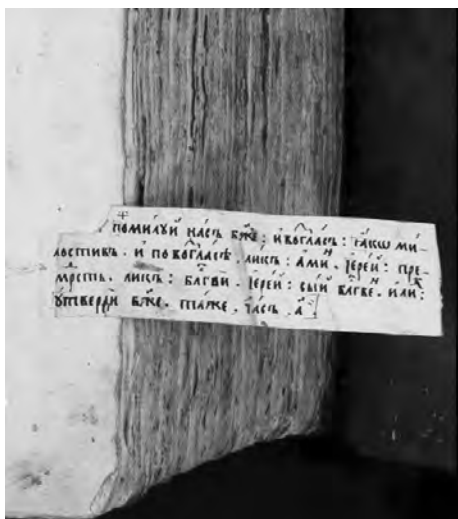 помилуй насъ бж҃е: и҆ возглас̑ъ: ꙗ҆́кѡ ми-
лостивъ. и҆ по возгласѣ̑. ликъ: а҆ми́н. і҆ере́й: пре-
мꙋ́дрⷭ҇ть. ликъ: бл҃гви̑. і҆ере́й: сы́й бл҃гве́н. и҆лѝ:
ᲂу҆твердѝ бж҃е. та́же. ча́съ. а҃